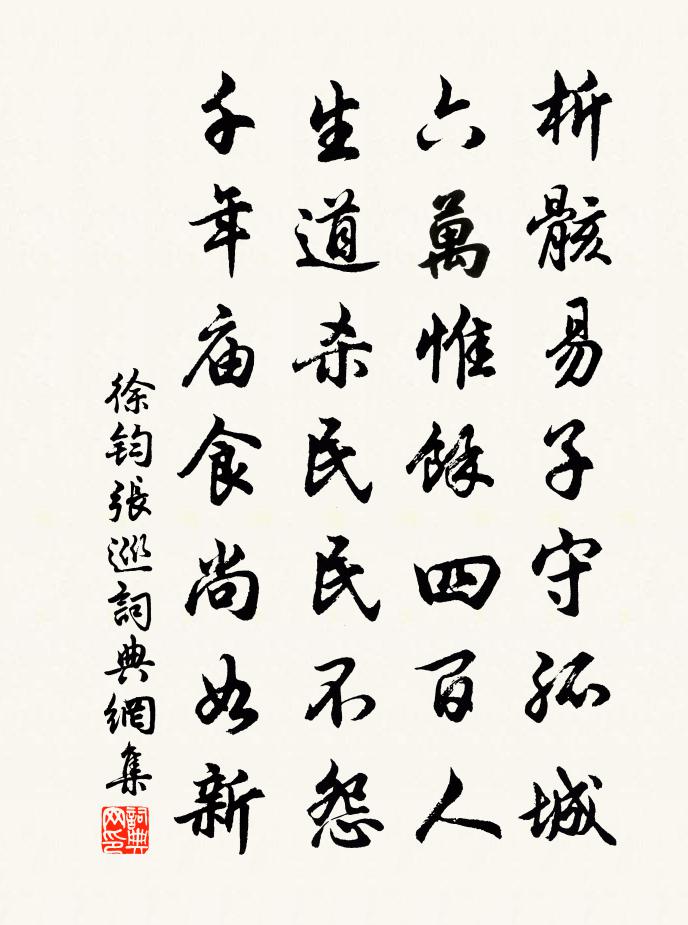 析骸易子守孤城
六萬惟餘四百人
生道杀民民不怨
千年庙食尚如新
徐鈞張巡詞典網集
詞典
网印